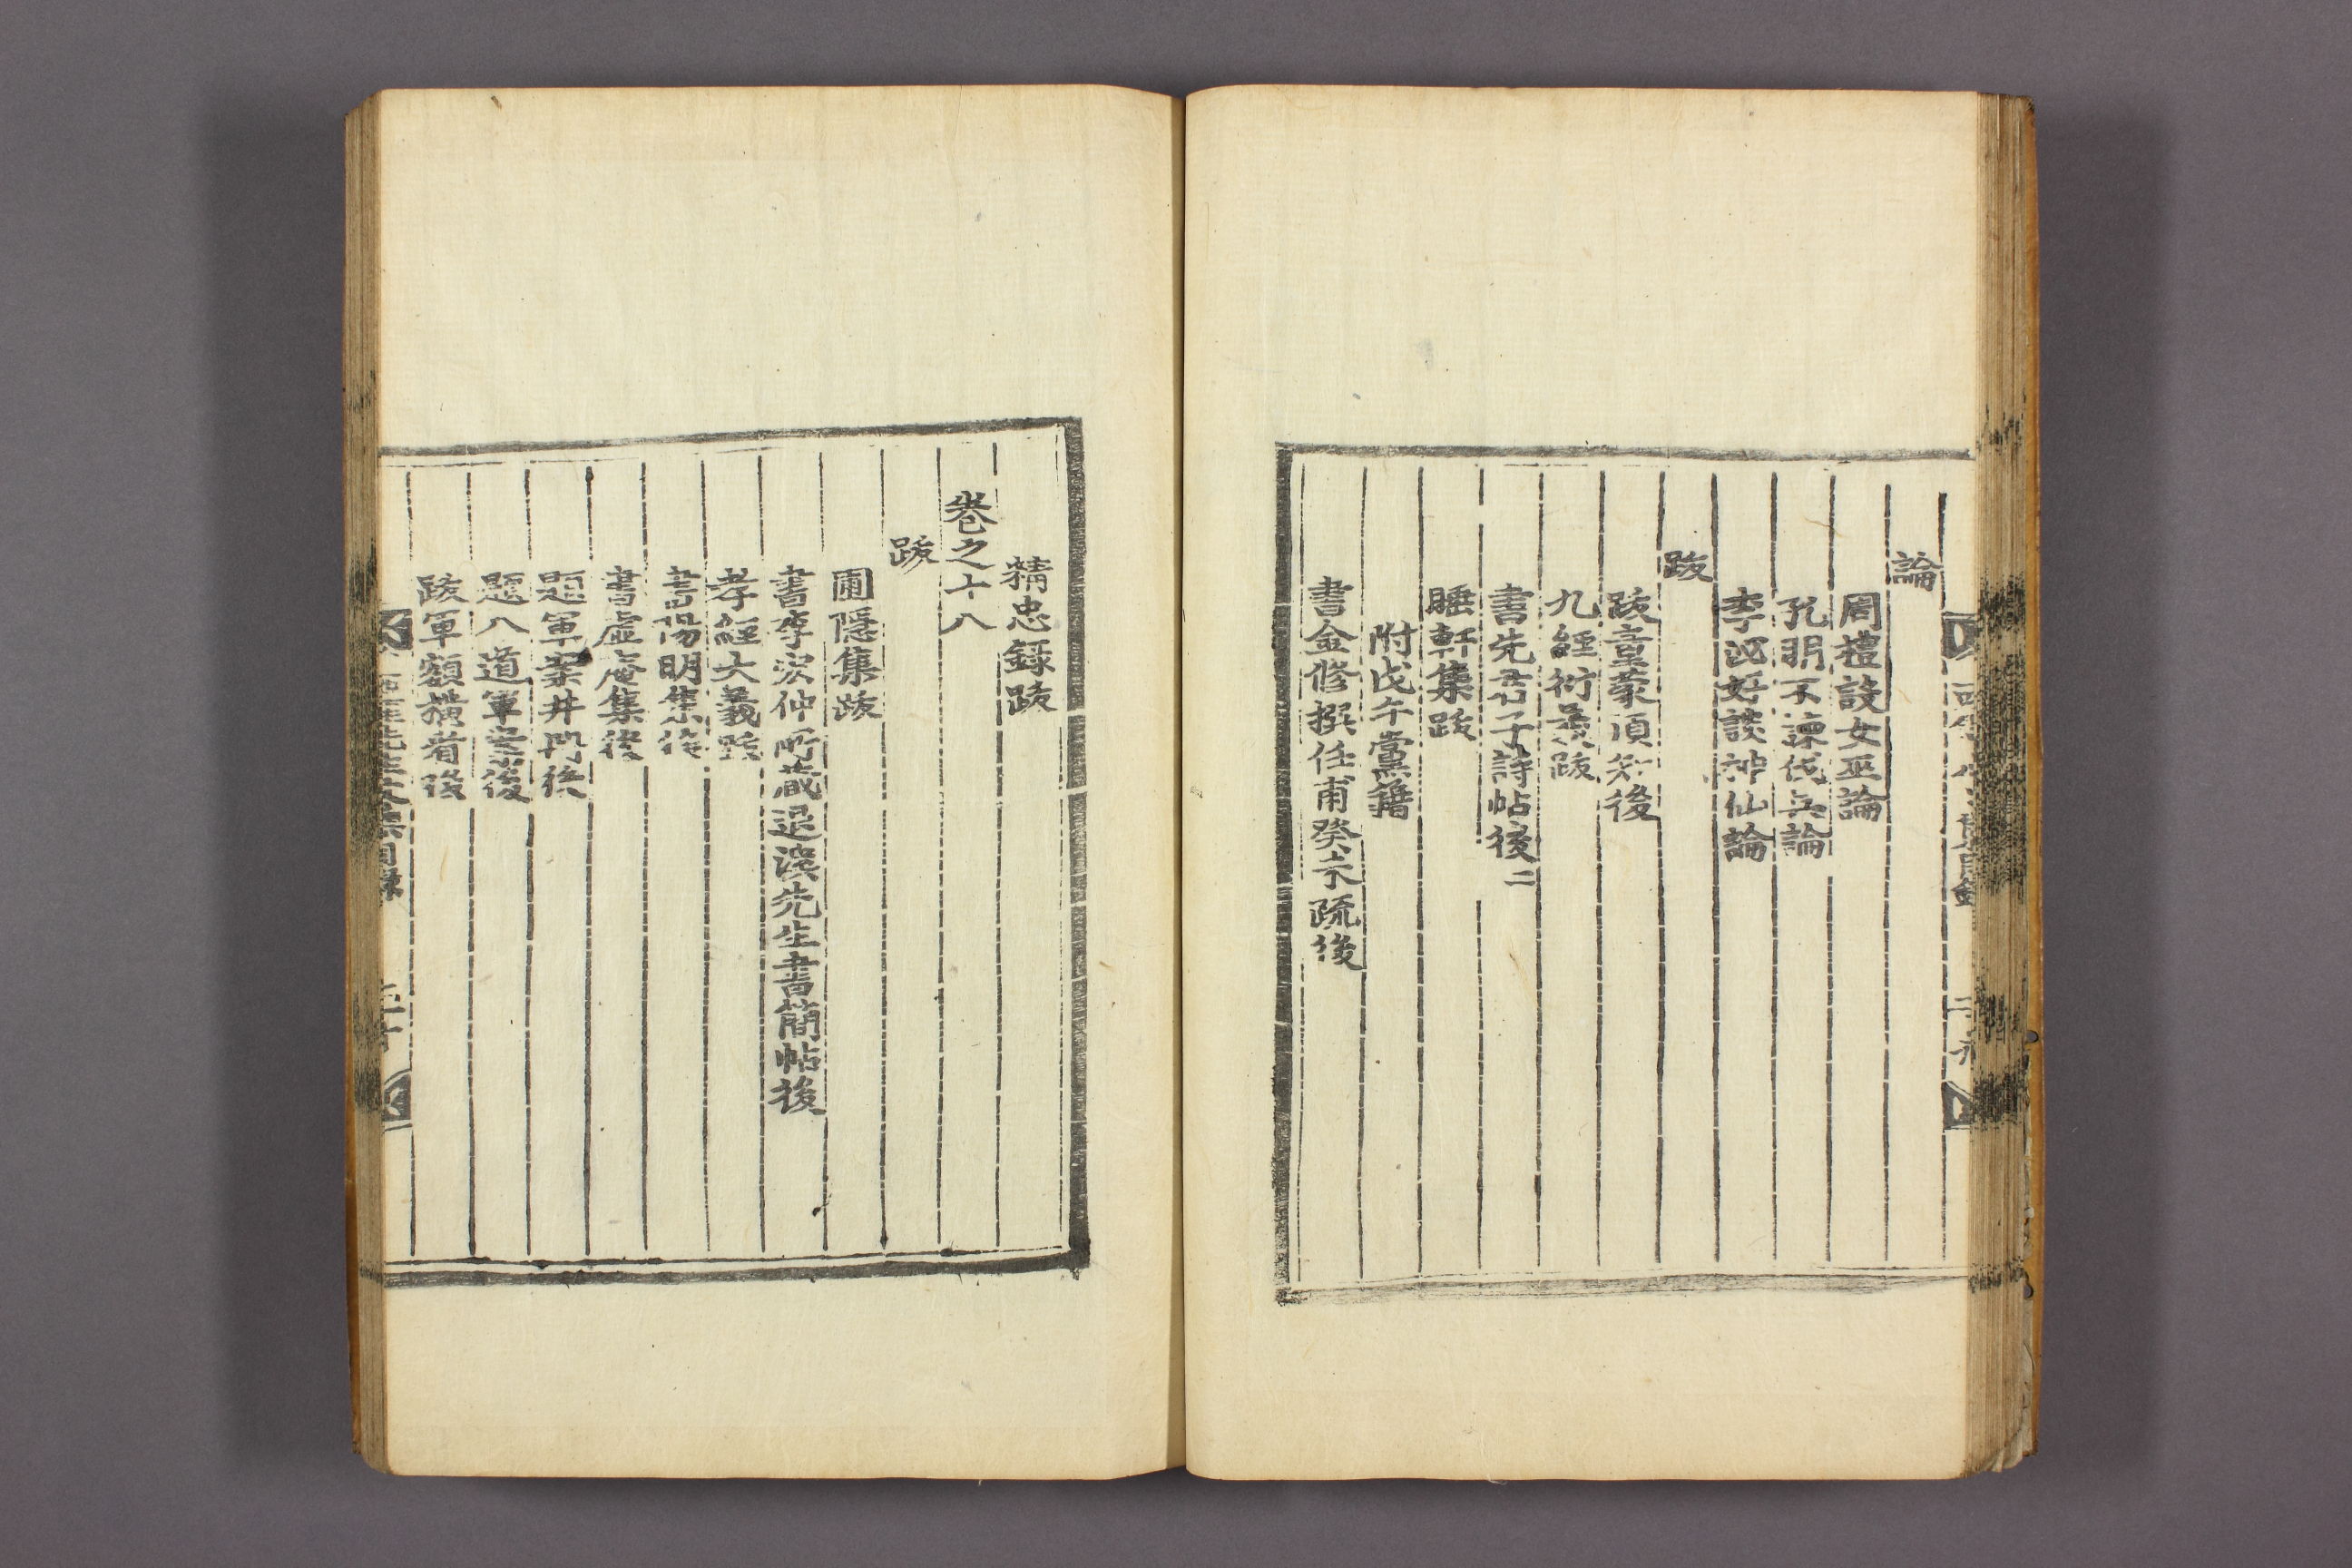 論
周禮設女巫論
孔明不諫伐吳論
李泌好談神仙論
跋
跋童蒙須知後
九經衍義跋
書先君子詩帖後二
睡軒集跋
附戊午黨籍
書金修撰任甫癸未疏後
精忠錄跋
卷之十八
跋
圃隱集跋
書李次仲所藏退溪先生書簡帖後
孝經大義跋
書陽明集後
書虛庵集後
題軍案井間後
題八道軍案後
跋軍額摠省後